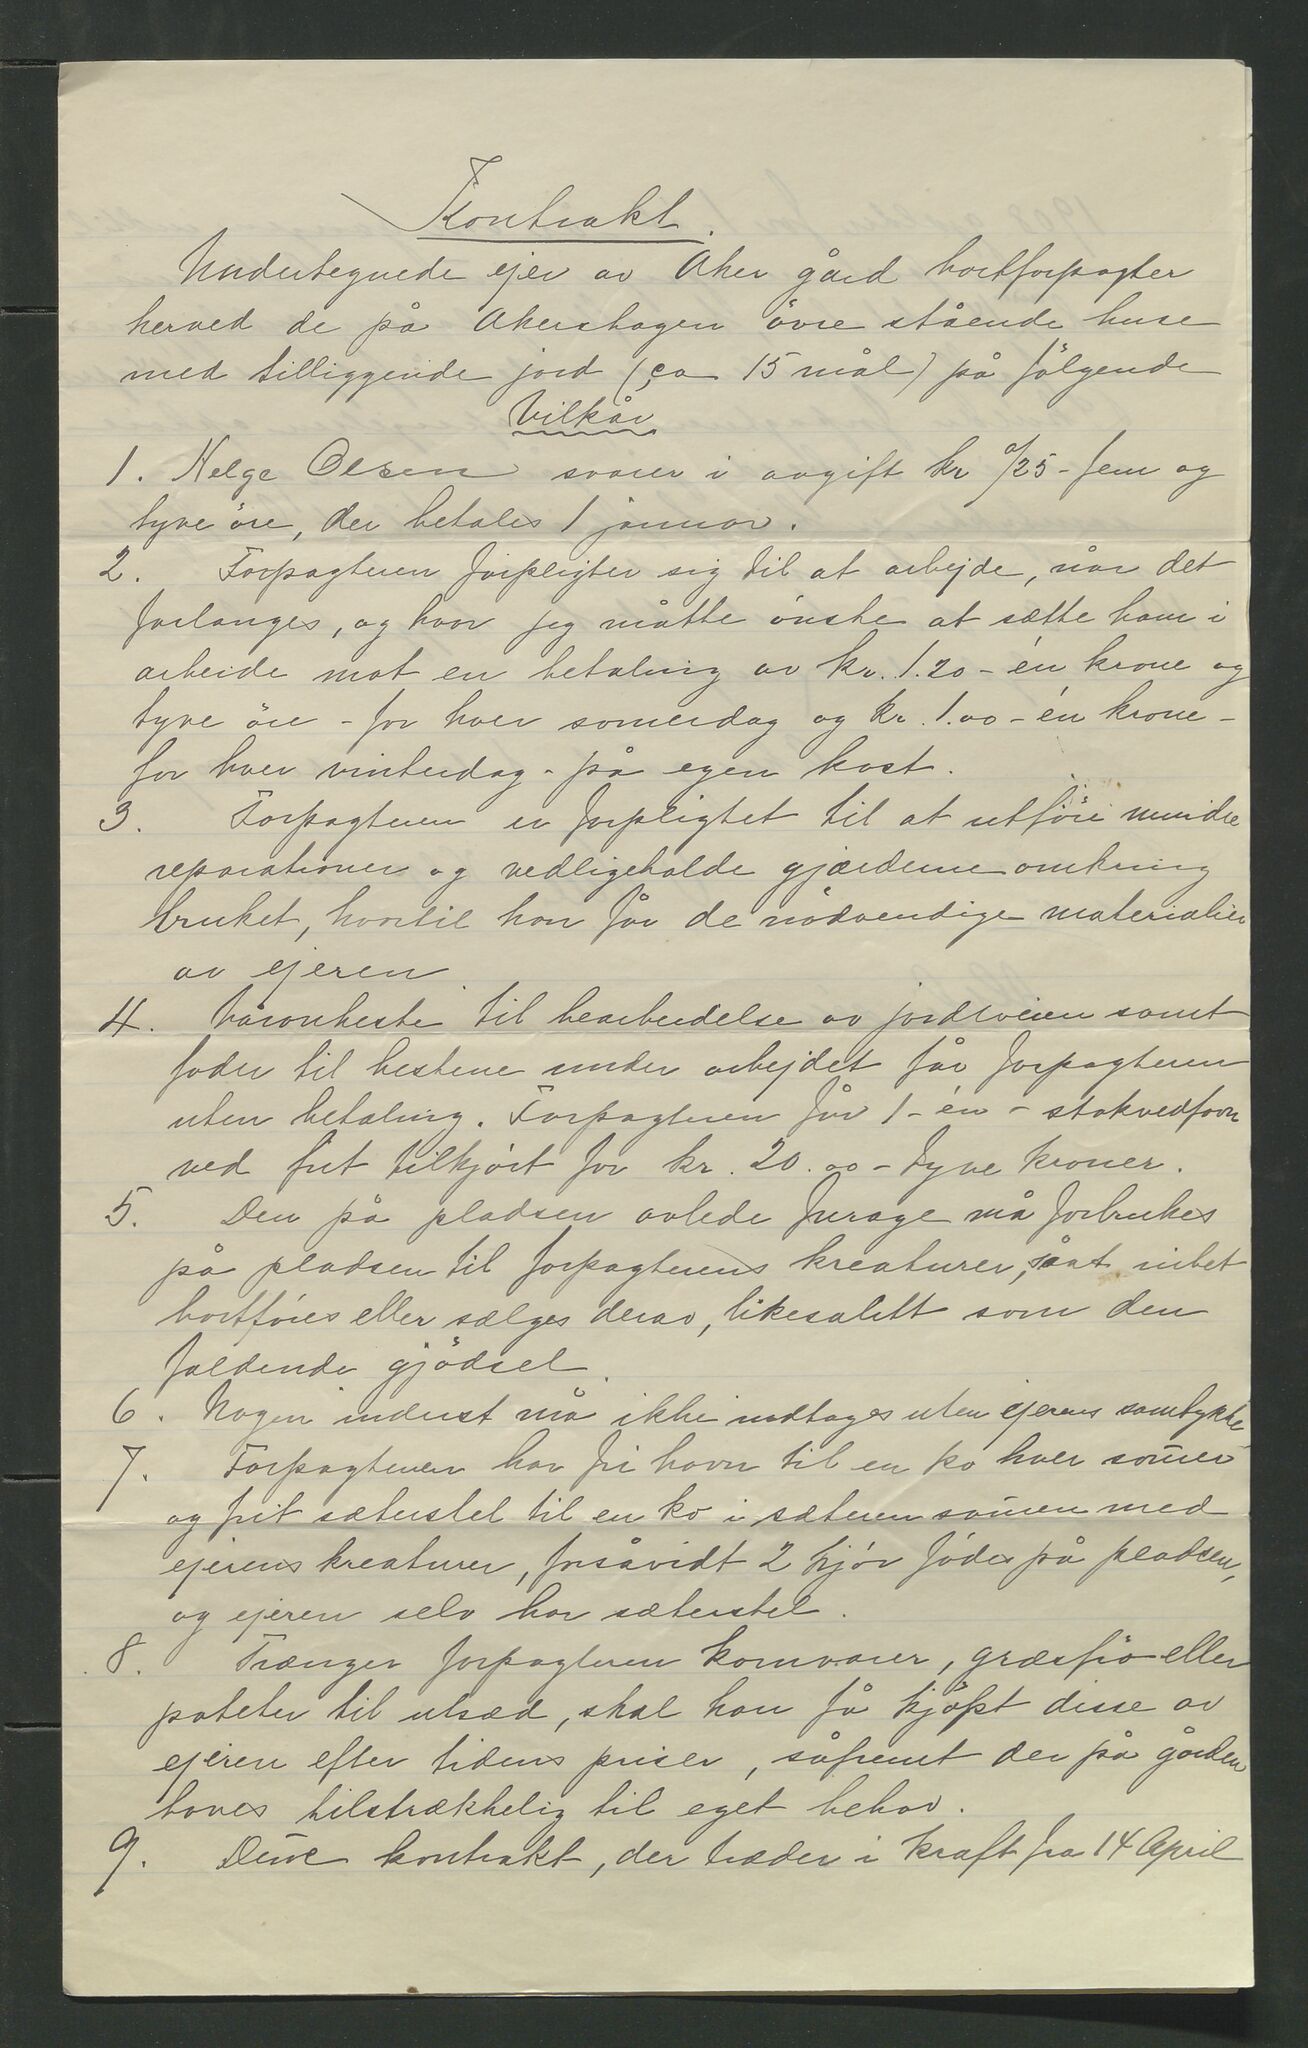 Kontrakt.
Undertegnede ejer av Aker gård bortforpagter
herved de på Akershagen övre stående huse
med tilliggende jord (ca 15 mål) på fölgende
Vilkår
1. Helge Olsen svarer i avgift kr 0/25 - fem og
tyve öre, der betales 1 januar.
2. Forpagteren forpligter sig til at arbejde, når det
forlanges, og hvor jeg måtte önske at sætte ham i
arbeide mot en betaling av kr. 1.20 - én krone og
tyve öre - for hver somerdag og kr. 1.00 - én krone -
for hver vinterdag - på egen kost.
3. Forpagteren er forpligtet til at utföre mindre
reparationer og vedligeholde gjærderne omkring
bruket, hvortil han får de nödvendige materialier
av ejeren.
4. Våronheste til bearbeidelse av jordveien samt
foder til hestene under arbejdet får forpagteren
uten betaling. Forpagteren får 1 - én - stakvedfavn
ved frit tilkjört for kr. 20.00 - tyve kroner.
5. Den på pladsen avlede furage må forbrukes
på pladsen til forpagterens kreaturer, såat intet
bortföres eller sælges derav, likesålitt som den
faldende gjödsel.
6. Nogen inderst må ikke modtages uten ejerens samtykke
7. Forpagteren har fri havn til en ko hver somer
og frit sæterstel til en ko i sæteren samen med
ejerens kreaturer, forsåvidt 2 kjör födes på pladsen,
og ejeren selv har sæterstel.
8. Trænger forpagteren kornvarer, græsfrö eller
poteter til utsæd, skal han få kjöpt disse av
ejeren efter tidens priser, såfremt der på gården
haves tilstrækkelig til eget behov.
9. Denne kontrakt, der træder i kraft fra 14 April